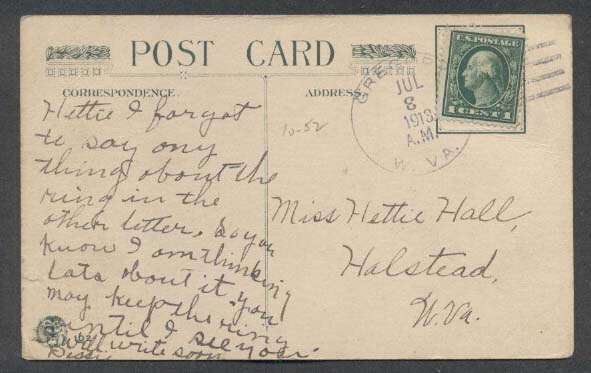 POST CARD
CORRESPONDENCE.
ADDRESS.
U.S. POSTAGE
1 CENT 1
JUL
8
1913
A.M.
W. VA.
10-52
Hettie I forgot
to say any
thing about the
ring in the
other letter. So you
know I am thinking
Lata about it. you
may keep the ring
until I see you.
will write soon
Miss Hettie Hall,
Halstead,
W.Va.